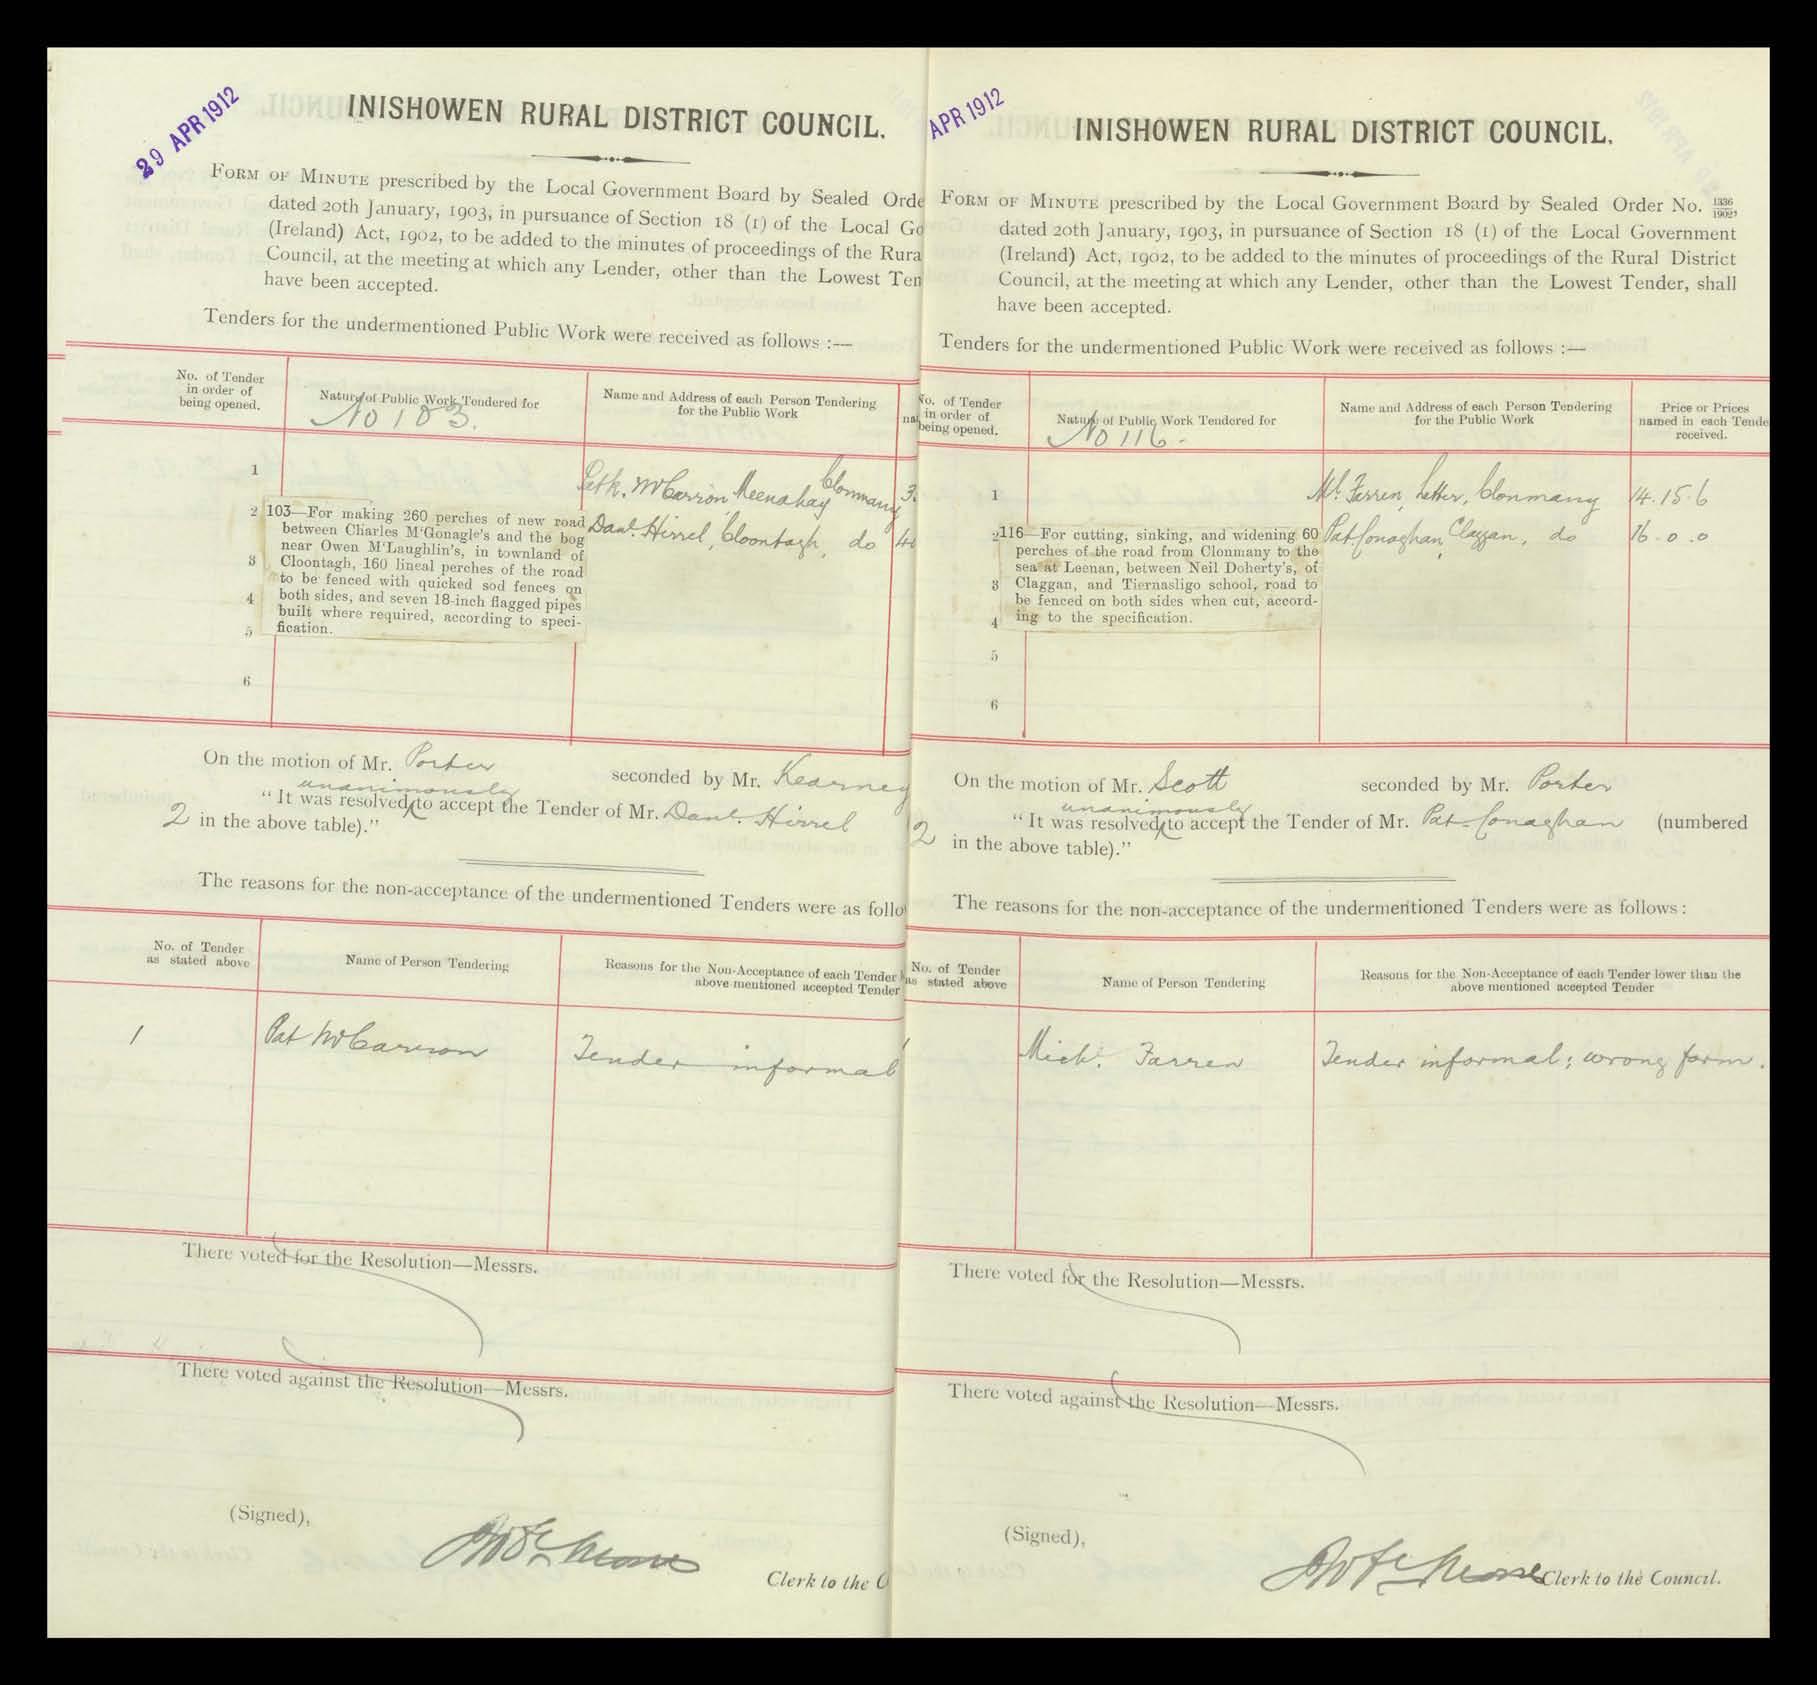 29 APR 1912
INISHOWEN RURAL DISTRICT COUNCIL.
FORM OF MINUTE prescribed by the Local Government Board by Sealed Orde
dated 20th January, 1903, in pursuance of Section 18 (1) of the Local Go
(Ireland) Act, 1902, to be added to the minutes of proceedings of the Rura
Council, at the meeting at which any Lender, other than the Lowest Ten
have been accepted.
Tenders for the undermentioned Public Work were received as follows :—
No. of Tender
in order of
being opened.
Nature of Public Work Tendered for
No 103.
Name and Address of each Person Tendering
for the Public Work
na
1
Patk. McCarron, Meenahay Clonmany 3
2
103—For making 260 perches of new road
between Charles M'Gonagle's and the bog
near Owen M'Laughlin's, in townland of
Cloontagh, 160 lineal perches of the road
to be fenced with quicked sod fences on
both sides, and seven 18-inch flagged pipes
built where required, according to speci-
fication.
Danl. Hirrel, Cloontagh, do
3
4
5
6
On the motion of Mr. Porter seconded by Mr. Kearney
unanimously
"It was resolved to accept the Tender of Mr. Danl. Hirrel
2 in the above table)."
The reasons for the non-acceptance of the undermentioned Tenders were as follo
No. of Tender
as stated above
Name of Person Tendering
Reasons for the Non-Acceptance of each Tender
above mentioned accepted Tender
1 Pat McCarron Tender informal
There voted for the Resolution—Messrs.
There voted against the Resolution—Messrs.
(Signed),
Clerk to the C
APR 1912
INISHOWEN RURAL DISTRICT COUNCIL.
FORM OF MINUTE prescribed by the Local Government Board by Sealed Order No. 1336/1902,
dated 20th January, 1903, in pursuance of Section 18 (1) of the Local Government
(Ireland) Act, 1902, to be added to the minutes of proceedings of the Rural District
Council, at the meeting at which any Lender, other than the Lowest Tender, shall
have been accepted.
Tenders for the undermentioned Public Work were received as follows :—
No. of Tender
in order of
being opened.
Nature of Public Work Tendered for
No 116-
Name and Address of each Person Tendering
for the Public Work
Price or Prices
named in each Tende
received.
1 Ml. Farren, Letter, Clonmany 14.15.6
2
116—For cutting, sinking, and widening 60
perches of the road from Clonmany to the
sea at Leenan, between Neil Doherty's, of
Claggan, and Tiernasligo school, road to
be fenced on both sides when cut, accord-
ing to the specification.
Pat Conaghan, Claggan, do 16.0.0
3
4
5
6
On the motion of Mr. Scott seconded by Mr. Porter
unanimously
"It was resolved to accept the Tender of Mr. Pat Conaghan (numbered
2 in the above table)."
The reasons for the non-acceptance of the undermentioned Tenders were as follows:
No. of Tender
as stated above
Name of Person Tendering
Reasons for the Non-Acceptance of each Tender lower than the
above mentioned accepted Tender
1 Michl. Farren Tender informal; wrong form.
There voted for the Resolution—Messrs.
There voted against the Resolution—Messrs.
(Signed),
Clerk to the Council.